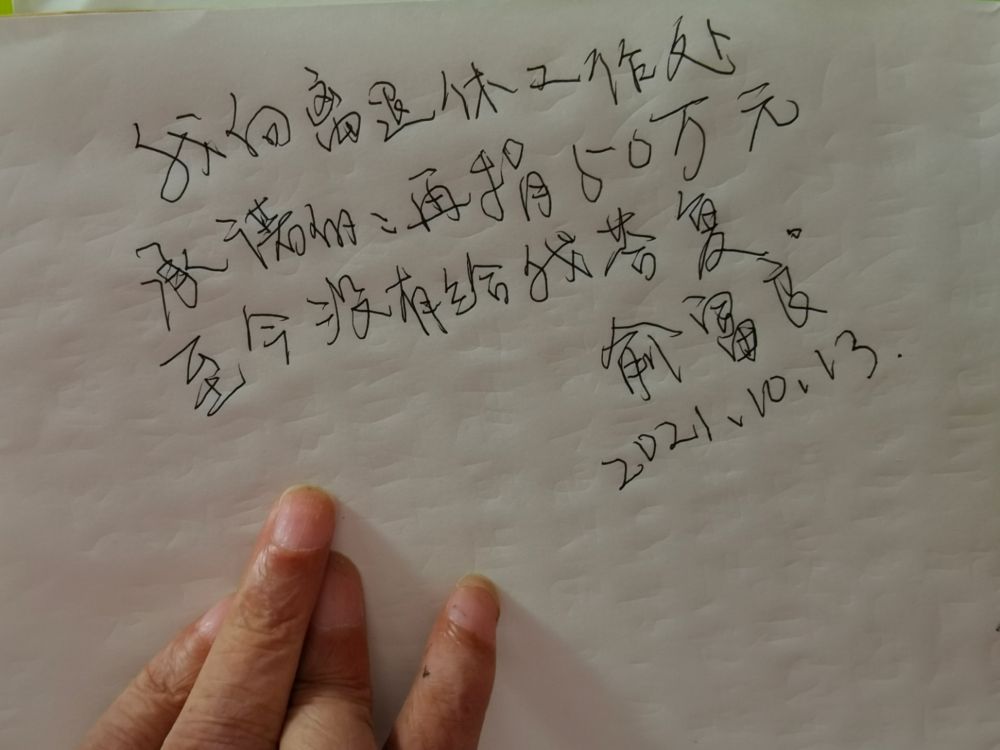 我向离退休工作处
承诺的：再捐50万元
至今没有给我答复。
俞富良
2021.10.13.